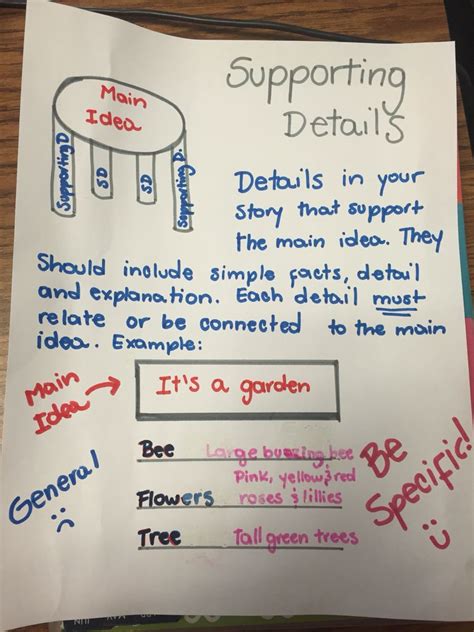 Supporting
Details
Main
Idea
Supporting D
SD
SD
Supporting D.
Details in your
Story that support
the main idea. They
Should include simple facts, detail
and explanation. Each detail must
relate or be connected to the main
idea. Example:
Main
Idea
It's a garden
General
Bee Large buzzing bee
Pink, yellow & red
Flowers roses & lillies
Tree Tall green trees
Be
Specific!